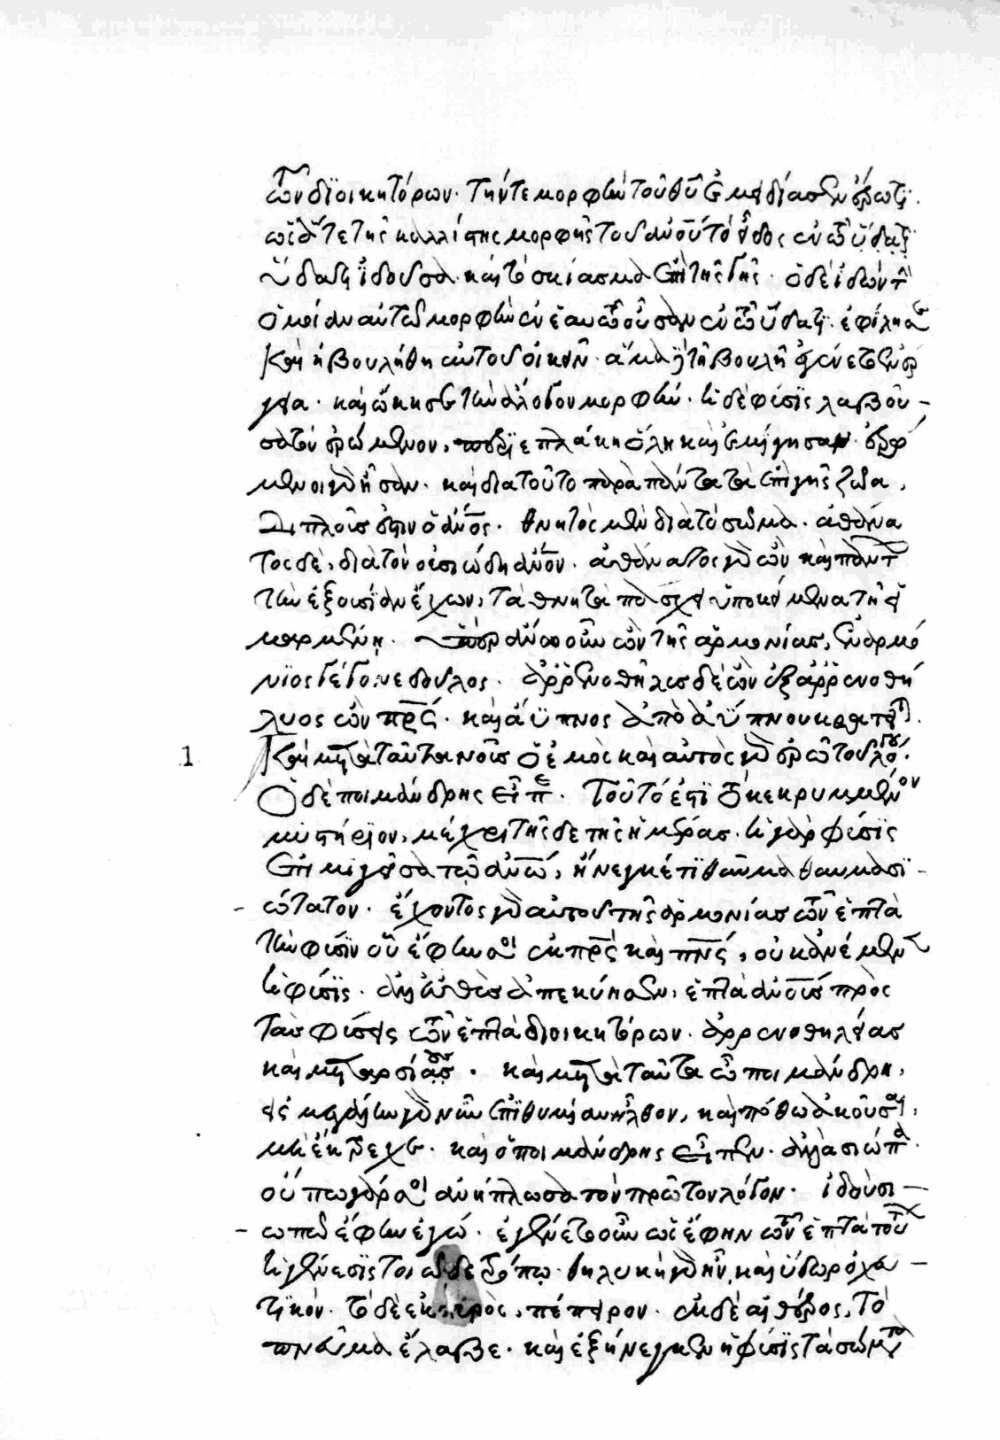 τῶν διοικητόρων· τήν τε μορφὴν τοῦ θῦ ἐμειδίασεν ἔρωτι·
ὡς ἅτε τῆς καλλίστης μορφῆς τοῦ ἀνοῦ τὸ εἶδος ἐν τῶ ὕδατι
ὕδατι ἰδοῦσα· καὶ τὸ σκίασμα ἐπὶ τῆς γῆς· ὁ δὲ ἰδὼν τὴν
ὁμοίαν αὐτῶ μορφὴν ἐν ἑαυτῶ οὖσαν ἐν τῶ ὕδατι· ἐφίλησε
καὶ ἠβουλήθη αὐτοῦ οἰκεῖν· ἅμα δὲ τῆ βουλῆ ἐγένετο ἐνέρ
γεια· καὶ ὤκησε τὴν ἄλογον μορφήν· ἡ δὲ φύσις λαβοῦ-
σα τὸν ἐρώμενον, περιεπλάκη ὅλη καὶ ἐμίγησαν· ἐρώ
μενοι γὰρ ἦσαν· καὶ διὰ τοῦτο παρὰ πάντα τὰ ἐπὶ γῆς ζῶα,
διπλοῦς ἐστιν ὁ ἄνος· θνητὸς μὲν διὰ τὸ σῶμα· ἀθάνα
τος δὲ, διὰ τὸν οὐσιώδη ἄνον· ἀθάνατος γὰρ ὢν καὶ πάντων
τὴν ἐξουσίαν ἔχων, τὰ θνητὰ πάσχει ὑποκείμενα τῆ εἱ
μαρμένη· ὑπεράνω οὖν ὢν τῆς ἁρμονίας, ἐναρμό
νιος γέγονε δοῦλος· ἀρρενόθηλυς δὲ ὢν ἐξ ἀρρενοθή
λυος ὢν πρς· καὶ ἄϋπνος ἀπὸ ἀΰπνου κρατεῖται·
1 Καὶ μετὰ ταῦτα νοῦς ὁ ἐμὸς καὶ αὐτὸς γὰρ ἐρῶ τοῦ λόγου·
Ὁ δὲ ποιμάνδρης εἶπε· Τοῦτό ἐστι τὸ κεκρυμμένον
μυστήριον, μέχρι τῆσδε τῆς ἡμέρας· ἡ γὰρ φύσις
ἐπιμιγεῖσα τῶ ἀνω, ἤνεγκέ τι θαῦμα θαυμασι-
ώτατον· ἔχοντος γὰρ αὐτοῦ τῆς ἁρμονίας τῶν ἑπτὰ
τὴν φύσιν οὓς ἔφην σοι ἐκ πρς καὶ πνς, οὐκ ἀνέμενεν
ἡ φύσις· ἀλλ' εὐθὺς ἀπεκύησεν, ἑπτὰ ἀνους πρὸς
τὰς φύσεις τῶν ἑπτὰ διοικητόρων· ἀρρενοθήλεας
καὶ μεταρσίους· καὶ μετὰ ταῦτα ὦ ποιμάνδρη,
εἰς μεγάλην γὰρ νῦν ἐπιθυμίαν ἦλθον, καὶ ποθῶ ἀκοῦσαι,
μὴ ἔκτρεχε· καὶ ὁ ποιμάνδρης εἶπεν· ἀλλὰ σιώπα·
οὔπω γάρ σοι ἀνήπλωσα τὸν πρῶτον λόγον· ἰδοὺ σι-
ωπῶ ἔφην ἐγώ· ἐγένετο οὖν ὡς ἔφην τῶν ἑπτὰ τούτων
ἡ γένεσις τοιῶδε τρόπω· θηλυκὴ γὰρ ἦν, καὶ ὕδωρ ὀχευ-
τικὸν· τὸ δὲ ἐκ πυρὸς, πέπειρον· ἐκ δὲ αἰθέρος, τὸ
πνεῦμα ἔλαβε· καὶ ἐξήνεγκεν ἡ φύσις τὰ σώματα